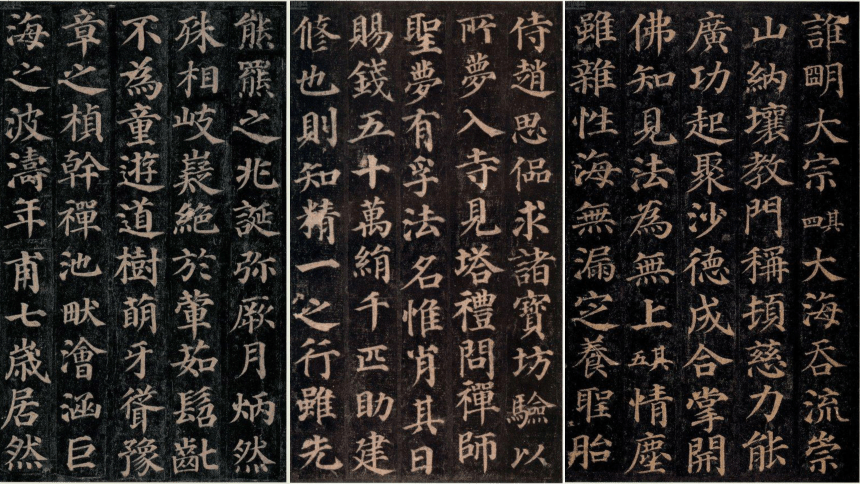 熊羆之兆誕弥厥月炳然
殊相岐嶷絕於葷茹髫齓
不為童遊道樹萌牙聳豫
章之楨幹禪池畎澮涵巨
海之波濤年甫七歲居然
侍趙思偘求諸寶坊驗以
所夢入寺見塔禮問禪師
聖夢有孚法名惟肖其日
賜錢五十萬絹千匹助建
修也則知精一之行雖先
誰眀大宗其四大海吞流崇
山納壤教門稱頓慈力能
廣功起聚沙德成合掌開
佛知見法為無上其五情塵
雖雜性海無漏定養聖胎